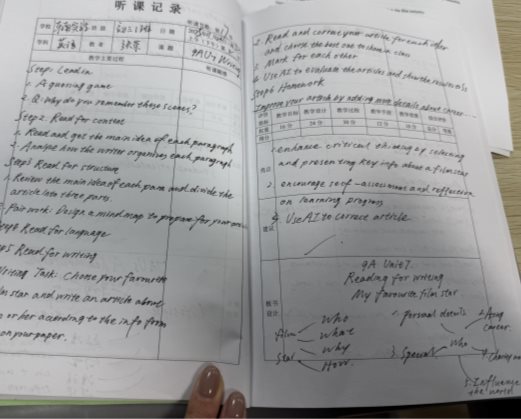 听课记录
学校
班级 初三1班
日期
学科 英语
教者
课题 9AU7 Writing
教学主要过程
听课随感
Step1 Lead in
1. A guessing game
2. Q: Why do you remember these scenes?
Step2 Read for content
1. Read and get the main idea of each paragraph
2. Analyse how the writer organizes each paragraph
Step3 Read for structure
1. Review the main idea of each para and divide the
article into three parts.
2. Pair work: Design a mind map to prepare for your
Read for language
Read for writing
Writing Task: Choose your favourite
film star and write an article about
or her according to the info from
on your paper.
2. Read and correct your article for each other
and choose the best one to show in class
3. Mark for each other
4. Use AI to evaluate the articles and show the
Step6 Homework
Improve your article by adding more details about career
教学目标
教学设计
教学过程
教学手段
1. enhance critical thinking by selecting
and presenting key info about a film star
2. encourage self-assessment and reflection
on learning progress
Use AI to correct article
建议
板书
设计
9A Unit7
Reading for writing
My favourite film star
film
star
Who
What
Why
How
personal details
Who
career
3. Special
5. Influence
the world